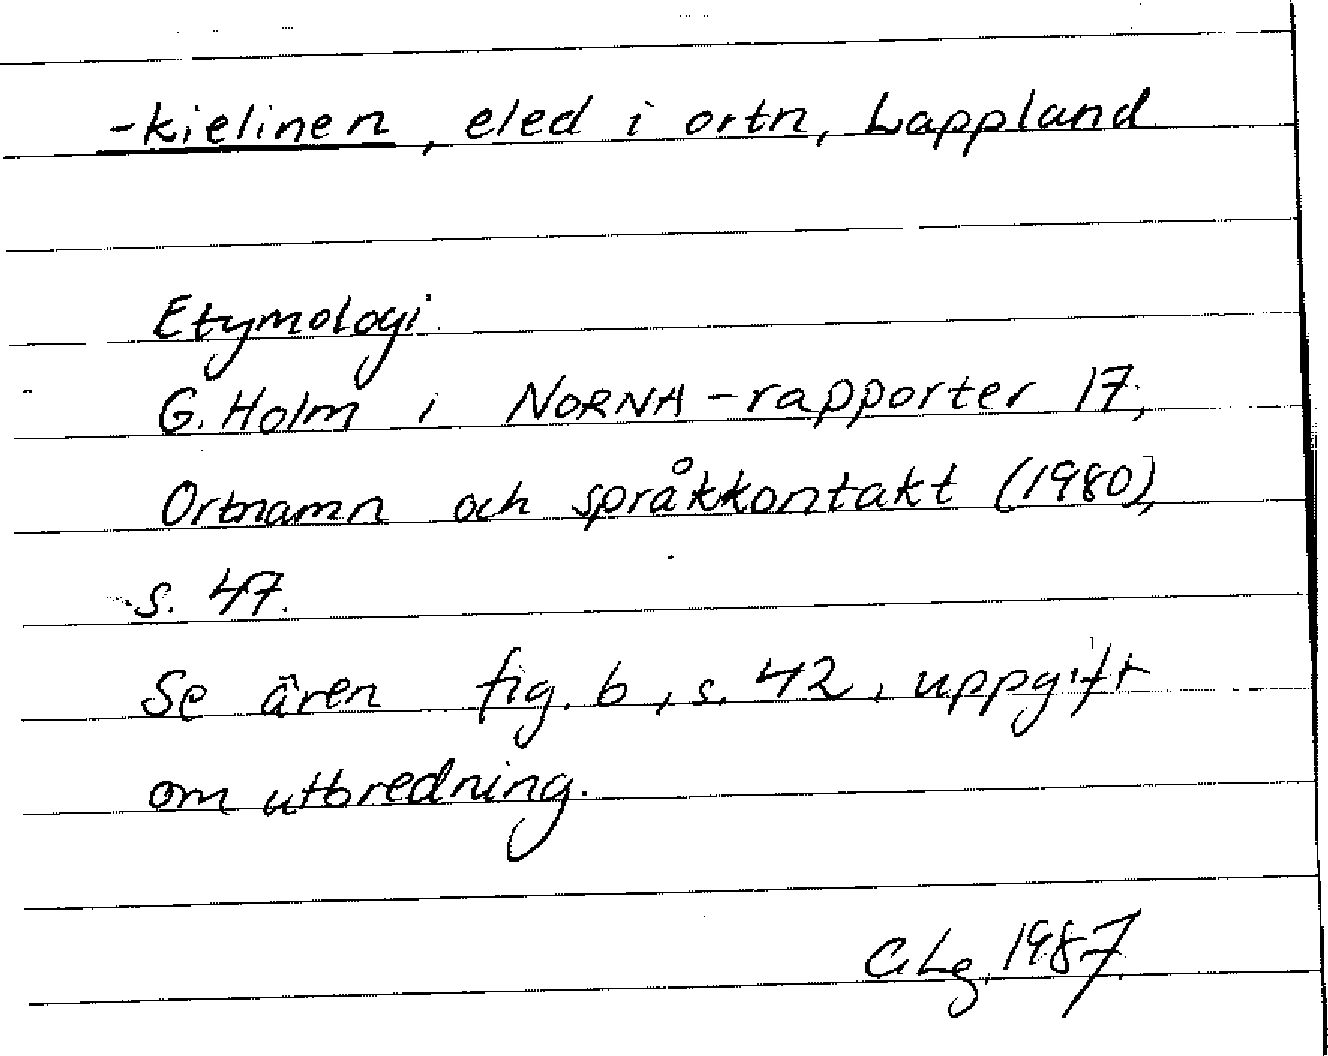 -kielinen, eled i ortn, Lappland
Etymologi.
G. Holm i NORNA-rapporter 17,
Ortnamn och språkkontakt (1980),
s. 47.
Se även fig. 6, s. 42, uppgift
om utbredning.
C. Lg, 1987